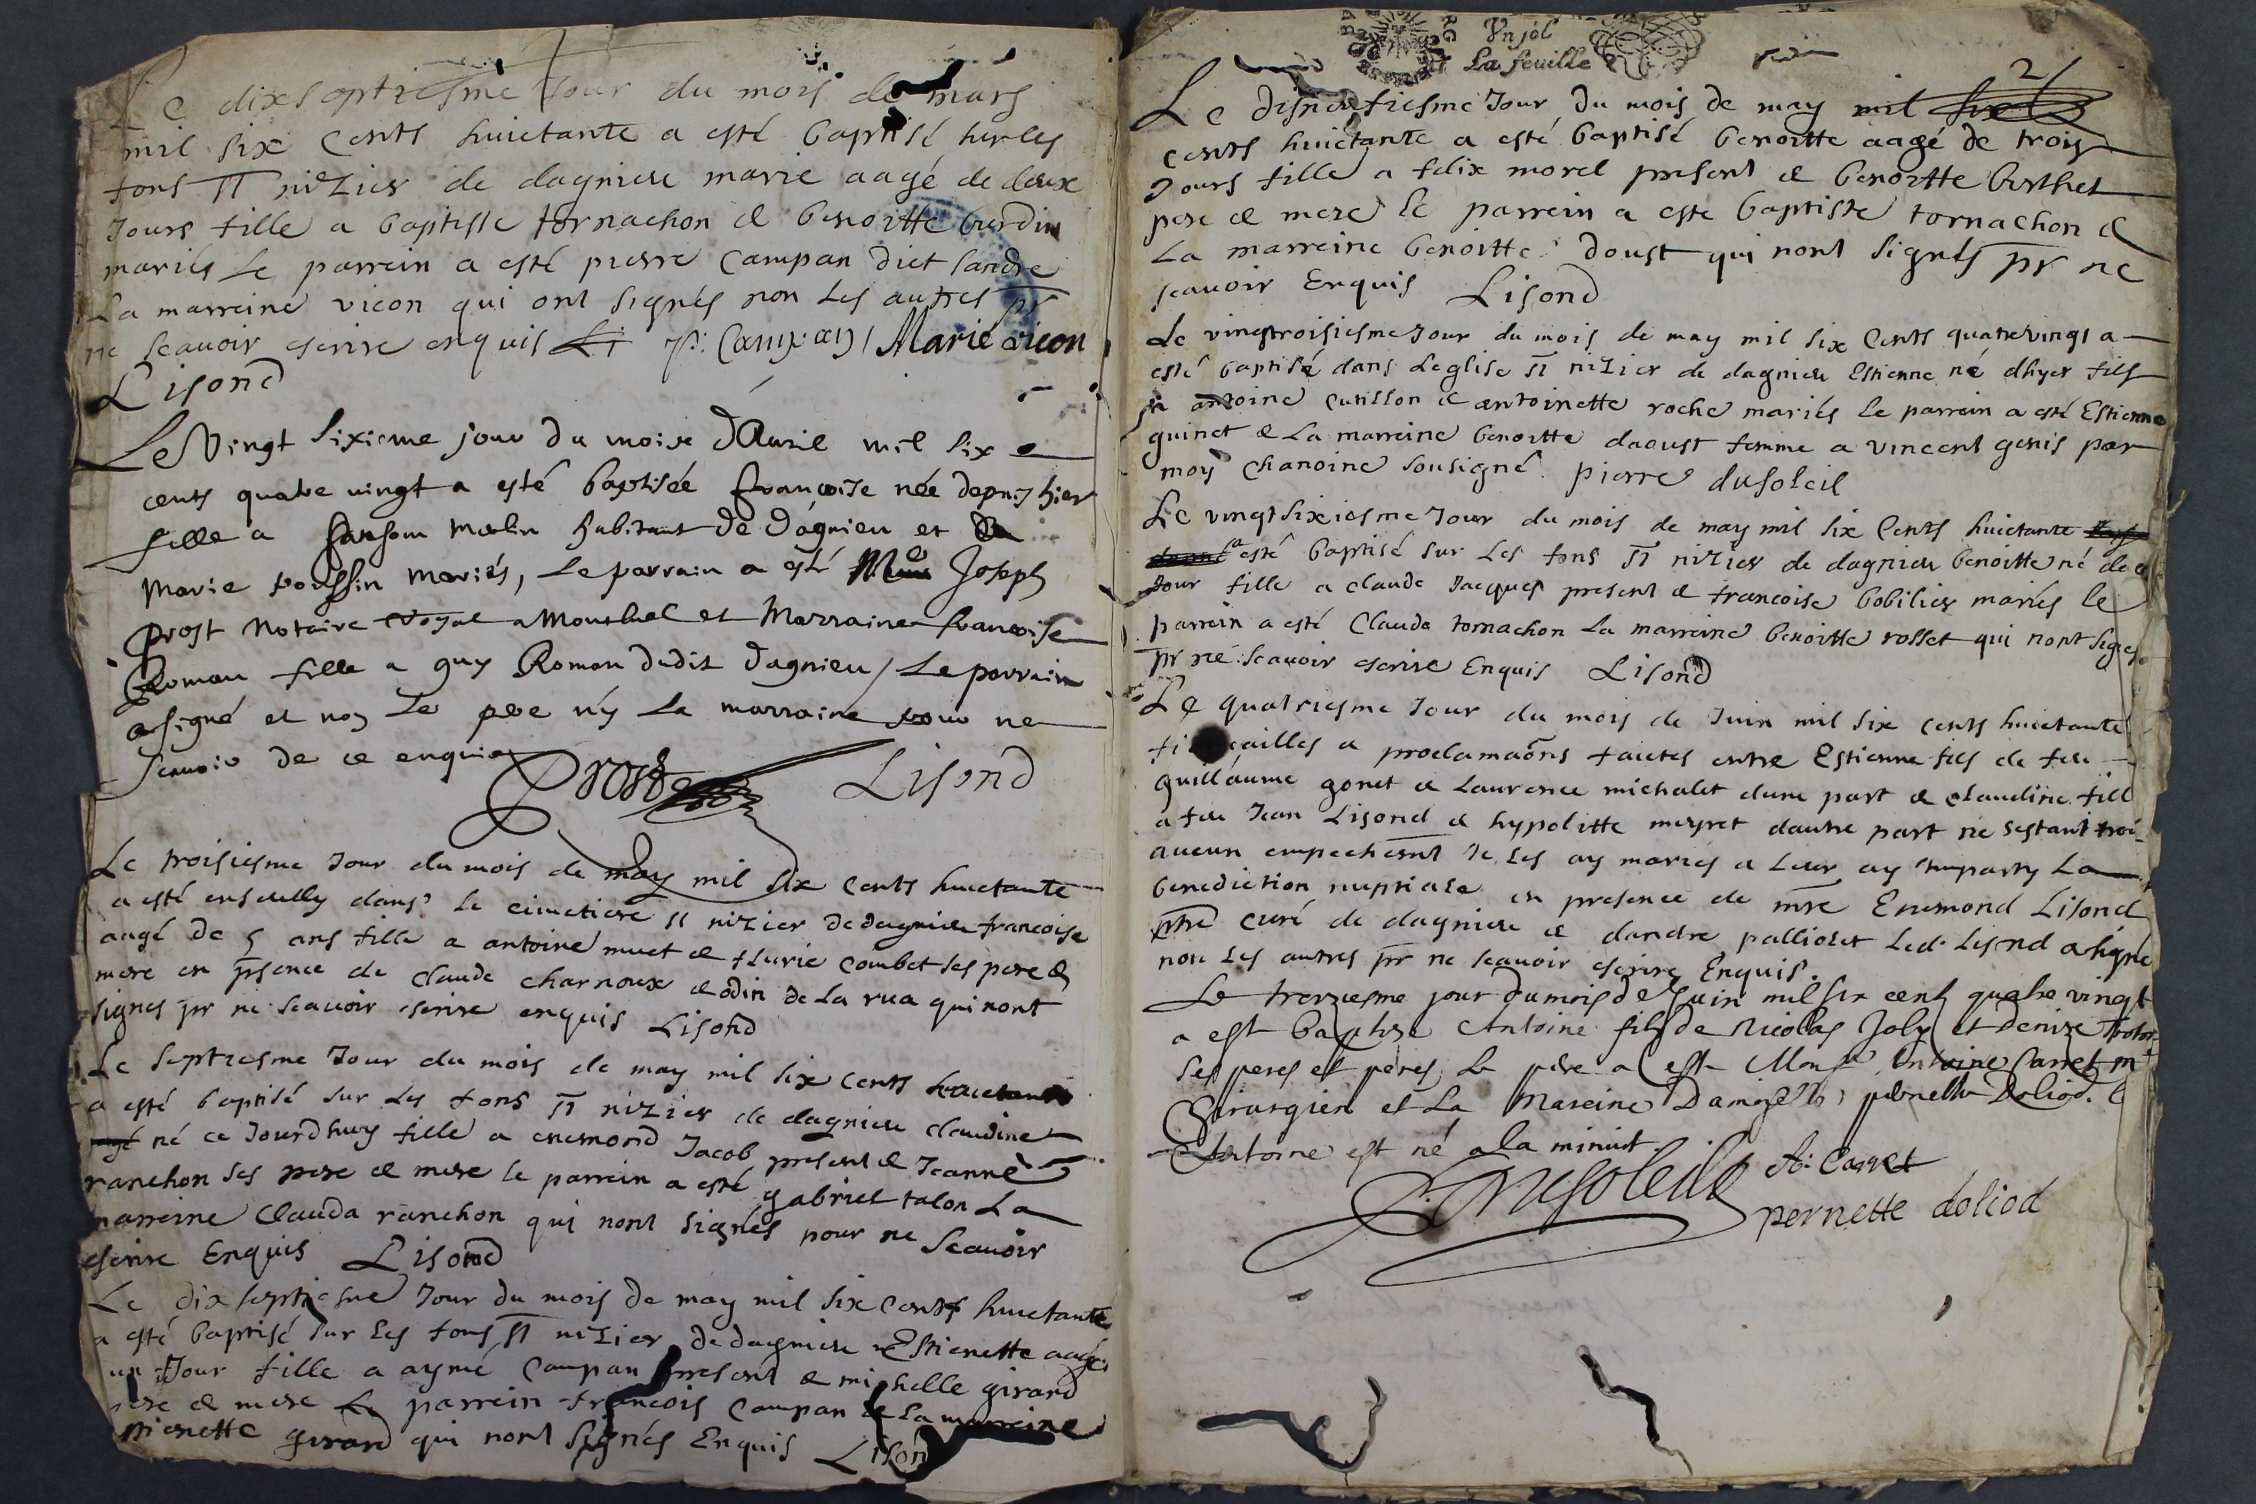 Le dixseptiesme Jour du mois de mars
mil six cents huictante a esté baptisé sur les
fons st nizier de dagnieu marie aagé de deux
Jours fille a baptiste tornachon & benoitte burdin
mariés Le parrein a esté pierre Campan dict landre
La marreine vicon qui ont signés non Les autres pr
ne scavoir escrire enquis P: Campan Marie vicon
Lisond
Le Vingt sixieme jour du mois d'Auril mil six
cents quatre vingt a esté baptisée françoise née depuis hier
fille a sansom molin habitant de dagnieu et
Marie poussin mariés, Le parrain a esté Me Joseph
prost Notaire Royal a Montluel et Marraine francoise
Roman fille a guy Roman dudit dagnieu / Le parrain
a signé et non Le pere n'y La marraine pour ne
scavoir de ce enquis
Prost Lisond
Le troisiesme Jour du mois de may mil six cents huictante
a esté enseuelly dans le cimetiere st nizier de dagnieu francoise
aagé de 5 ans fille a antoine muet & flurie combet ses pere &
mere en psence de Claude Charnoux & odin de La rua qui nont
signes pr ne scavoir escrire enquis Lisond
Le septiesme Jour du mois de may mil six cents huictante
a esté baptisé sur Les fons st nizier de dagnieu claudine
né ce Jourdhuy fille a enemond Jacob present & Jeanne
ranchon ses pere & mere le parrein a esté gabriel talon La
marreine Clauda ranchon qui nont signés pour ne scavoir
escrire Enquis Lisond
Le dix septiesme Jour du mois de may mil six cents huictante
a esté baptisé sur Les fons st nizier de dagnieu Estienette aagé
un Jour fille a aymé Campan present & michelle girard
pere & mere Le parrein francois Campan & La marreine
pierrette girard qui nont signés Enquis Lisond
Vn sol
La feuille
2
Le disneufiesme Jour du mois de may mil six
cents huictante a esté baptisé benoitte aagé de trois
Jours fille a felix morel present & benoitte berthet
pere & mere le parrein a este baptiste tornachon &
La marreine benoitte doust qui nont signés pr ne
scavoir Enquis Lisond
Le vingtroisiesme Jour du mois de may mil six Cents quatrevingt a
esté baptisé dans Leglise st nizier de dagnieu Estienne né dhyer fils
a antoine cutisson & antoinette roche mariés le parrein a esté Estienne
guinet & La marreine benoitte daoust femme a vincent genis par
moy chanoine sousigné pierre dusoleil
Le vingtsixiesme Jour du mois de may mil six Cents huictante
a esté baptisé sur Les fons st nizier de dagnieu benoitte né de ce
Jour fille a claude Jacques present & francoise bobilier mariés le
parrein a esté Claude tornachon La marreine benoitte rosset qui nont signes
pr ne scavoir escrire Enquis Lisond
Le quatriesme Jour du mois de Juin mil six cents huictante
proclamaons faictes entre Estienne fils de feu
guillaume gonet & Laurence michalet dune part & claudine fille
a feu Jean Lisond & hypolitte meyret dautre part ne sestant
aucun empechemt Je Les ay mariés a Leur ay imparty La
benediction nuptiale en presence de mre Enemond Lisond
ptre curé de dagnieu & dandre palliolet Led. Lisond a signé
non Les autres pr ne scavoir escrire Enquis.
Le treziesme jour du mois de Juin mil six cent quatre vingt
a est baptize Antoine fils de Nicolas Joly et denize
ses peres et peres, Le pere a est Monsr Antoine Carret mr
Chirurgien et La Mareine Damoizelle pernette Doliod. Ce
Antoine est né a la minuit
P. Dusoleil A: Carret
pernette doliod